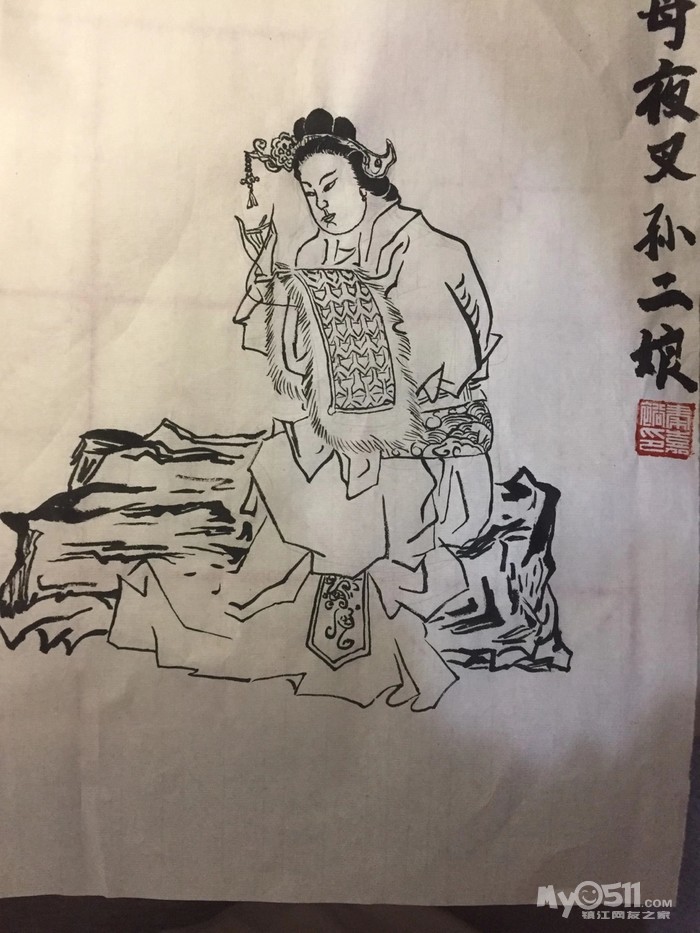 母夜叉孙二娘
My0511.COM
镇江网友之家